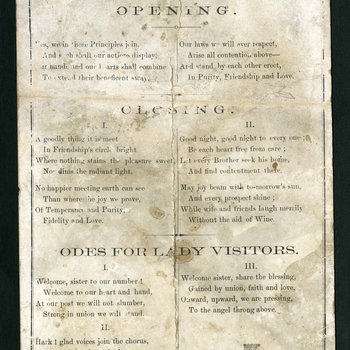 OPENING.
we in these Principles join,
And each shall our actions display;
hands and our hearts shall combine
To extend their beneficent sway.
Our laws we will ever respect,
Arise all contention above—
And stand by each other erect,
In Purity, Friendship and Love.
CLOSING.
I.
A goodly thing it is meet
In Friendship's circle bright
Where nothing stains the pleasure sweet
Nor dims the radiant light.
No happier meeting earth can see
Than where the joy we prove,
Of Temperance and Purity,
Fidelity and Love.
II.
Good night, good night to every one;
Be each heart free from care;
Let every Brother seek his home,
And find contentment there.
May joy beam with to-morrow's sun,
And every prospect shine;
While wife and friends laugh merrily
Without the aid of Wine.
ODES FOR LADY VISITORS.
I.
Welcome, sister to our number!
Welcome to our heart and hand;
At our post we will not slumber,
Strong in union we will stand.
II.
Hark! glad voices join the chorus,
III.
Welcome sister, share the blessing,
Gained by union, faith and love,
Onward, upward, we are pressing,
To the angel throng above.